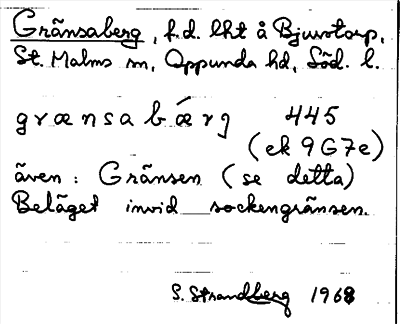 Gränsaberg, f.d. lht å Bjurstorp,
St. Malms sn, Oppunda hd, Söd. l.
grænsabǽrg 445
(ek 9G7e)
även: Gränsen (se detta)
Beläget invid sockengränsen.
S. Strandberg 1968